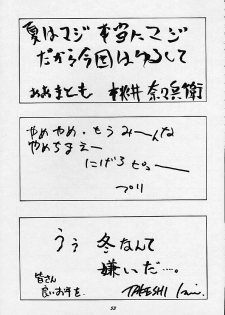 夏はマジ 本当にマジ
だから今回はゆるして
おおまとも 桃井奈々兵衛
やめやめ・もうみーんな
やめちまえー
にげろピュー
プリ
うぅ 冬なんて
嫌いだ…。
皆さん
良いお年を。
TAKESHI
52